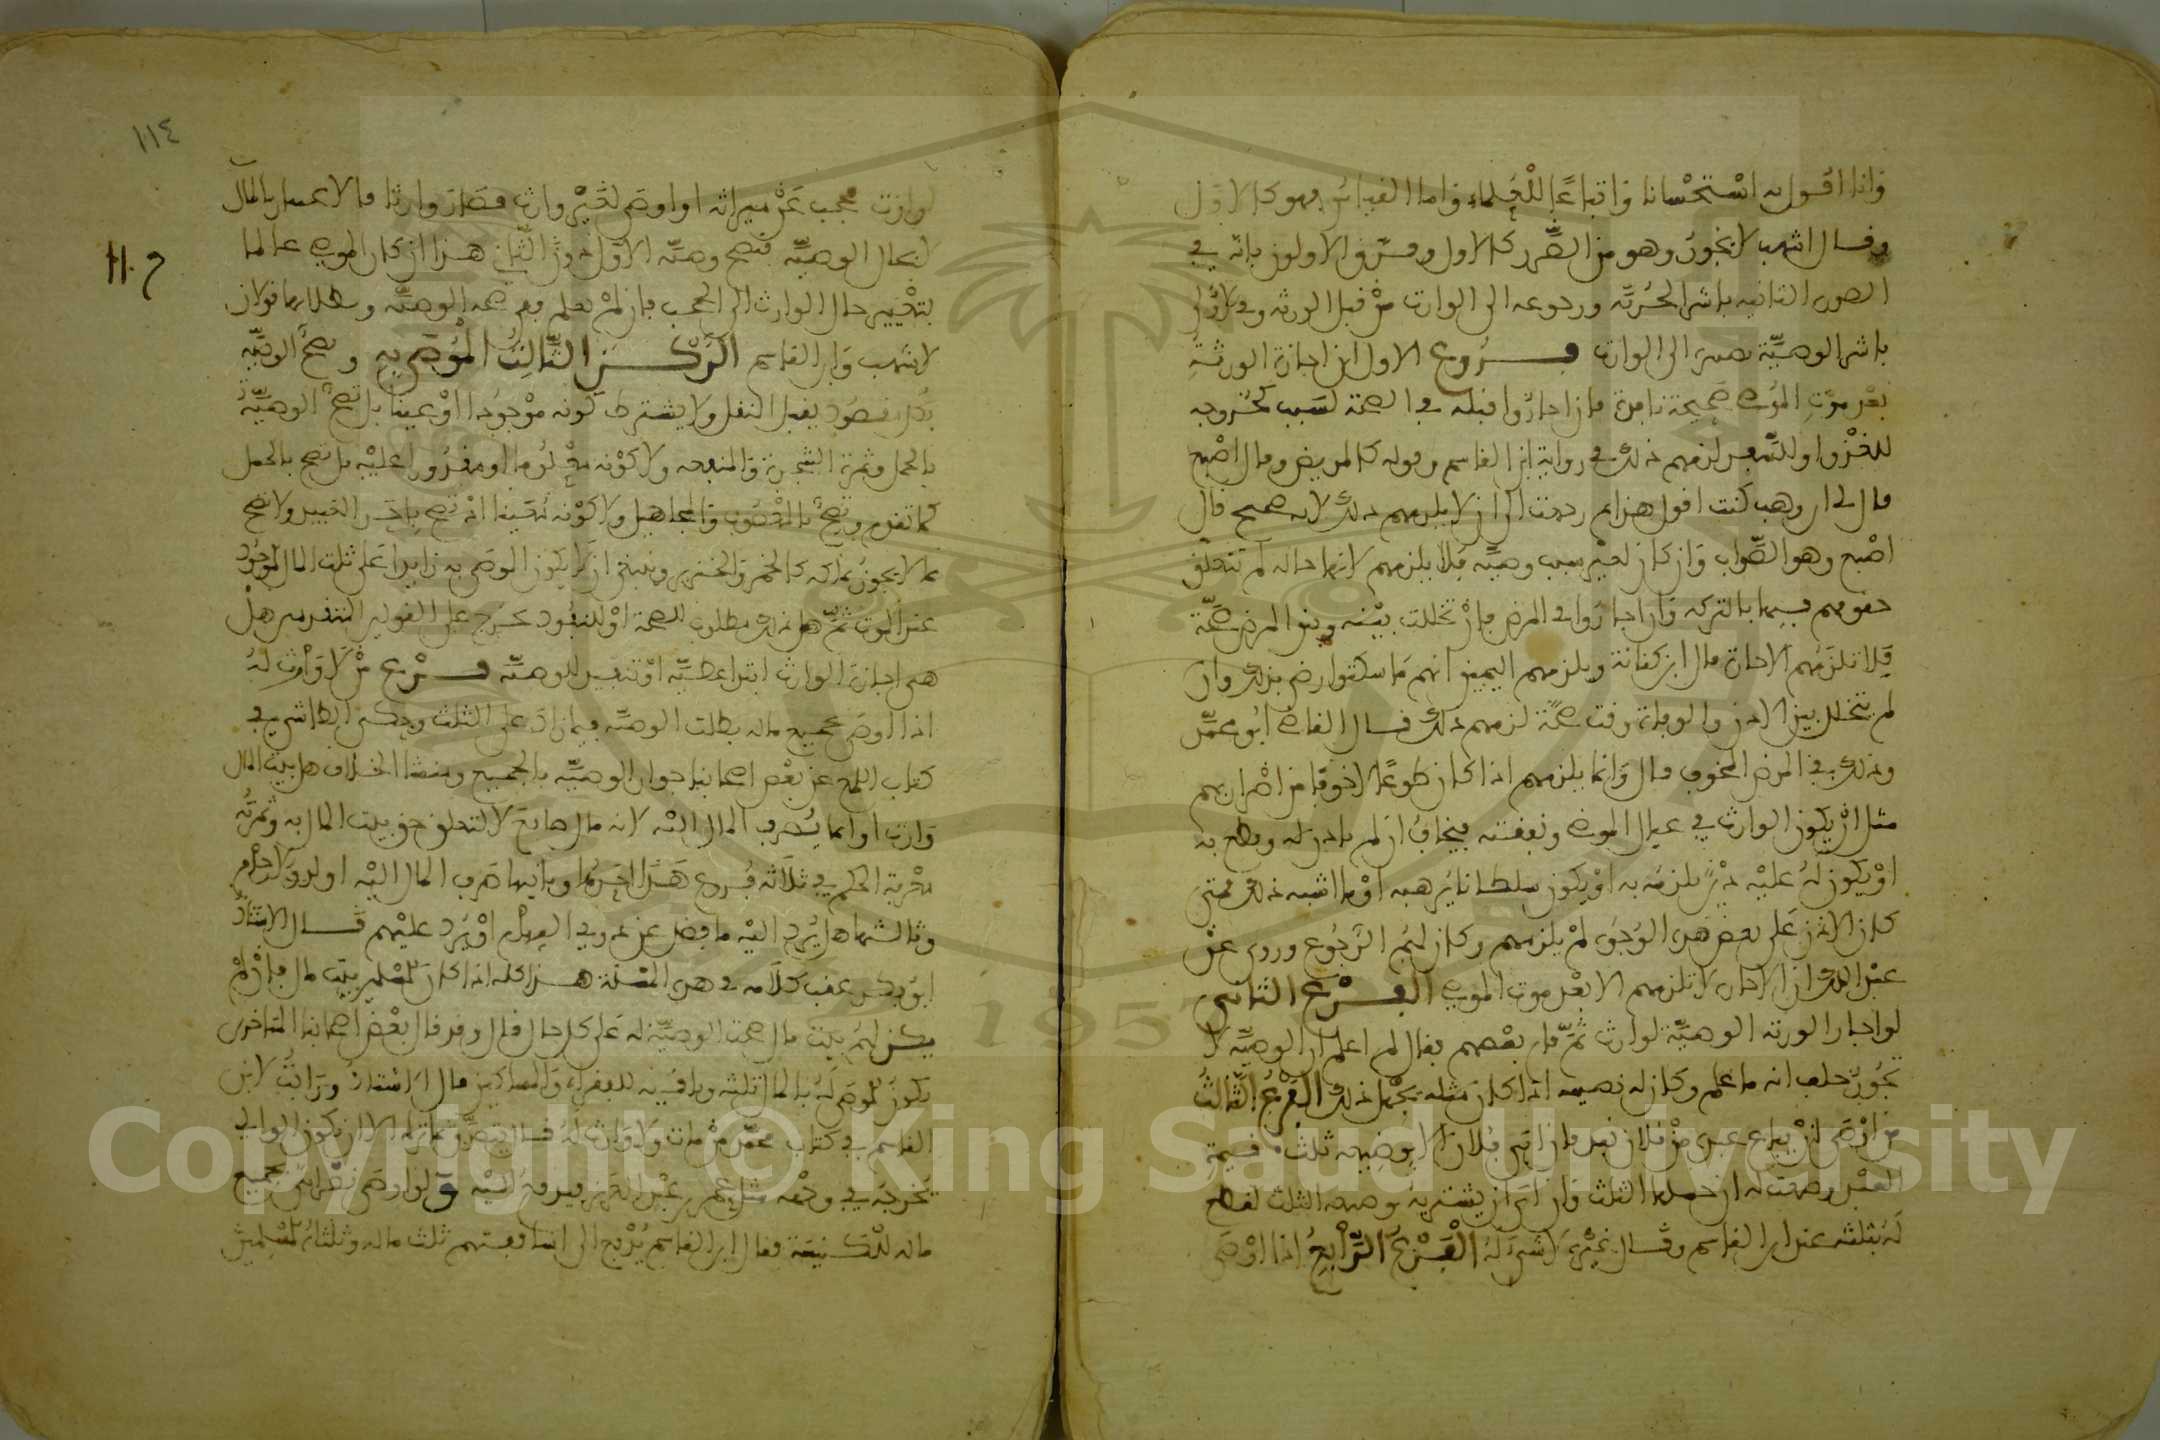 وانا اقول به استحسانا واتباعا للعلماء واما القياس فهو كالاول
وقال اشهب لا يجوز وهو من الضرر كالاول وفرق الاولون بانه في
الصورة الثانية باشر الحرية ورجوعه الى الوارث من قبل الورثة وفي الاولى
باشر الوصية بصرف الى الوارث فروع الاول ان اجازة الورثة
بعد موت الموصي صحيحة نافذة فان اجازوا قبله في الصحة لسبب كخروجه
للغزو او للسفر لزمهم ذلك في رواية ابن القاسم وقوله كالمريض وقال اصبغ
قال لي ابن وهب كنت اقول هذا ثم رجعت الى ان لا يلزمهم ذلك لانه صحيح قال
اصبغ وهو الصواب وان كان لغير سبب وصية فلا يلزمهم لانها حالة لم تتعلق
حقوقهم فيها بالتركة وان اجازوا في المرض فان تخللت بينه وبين المرض صحة
فلا تلزمهم الاجازة قال ابن كنانة ويلزمهم اليمين انهم ما سكتوا رضى بذلك وان
لم يتخلل بين الاذن والوفاة وقت صحة لزمهم ذلك قال القاضي ابو محمد
وذلك في المرض المخوف قال وانما يلزمهم اذا كان طوعا لا خوفا من اضراربهم
مثل ان يكون الوارث في عيال الموصي ونفقته فيخاف ان لم ياذن له وقطع به
او يكون له عليه دين يلزمه به او يكون سلطانا يرهبه او ما اشبه ذلك فمتى
كان الاذن على بعض هذه الوجوه لم يلزمهم وكان لهم الرجوع وروي عن
عبد الملك ان الاجازة لا تلزمهم الا بعد موت الموصي الفرع الثاني
لو اجاز الورثة الوصية لوارث ثم قام بعضهم فقال لم اعلم ان الوصية لا
تجوز حلف انه ما علم وكان له نصيبه اذا كان مثله يجهل ذلك الفرع الثالث
من اوصى ان يباع عبده من فلان بعد فان ابى فلان الا بوضيعة ثلث قيمة
العبد وضعت له ان حملها الثلث وان ابى ان يشتريه بوضيعة الثلث قطع
له بثلثه عند ابن القاسم وقال غيره لا شيء له الفرع الرابع اذا اوصى
١١٤
لوارث فحجب عن ميراثه او اوصى لغير وارث فصار وارثا فالاعتبار بالمال
لا بحال الوصية فتصح وصية الاول دون الثاني هذا ان كان الموصي عالما
بتغيير حال الوارث الى الحجب فان لم يعلم ففي صحة الوصية وبطلانها قولان
لاشهب وابن القاسم الركن الثالث الموصى به وتصح الوصية
بكل مقصود يقبل النقل ولا يشترط كونه موجودا او عينا بل تصح الوصية
بالحمل وثمرة الشجرة والمنفعة ولا كونه معلوما او مقدورا عليه بل تصح بالحمل
كما تقدم وتصح بالمغصوب والمجاهيل ولا كونه معينا اذ تصح باحد العبيد ولا تصح
بما لا يجوز تملكه كالخمر والخنزير وينبغي ان لا يكون الموصى به زايدا على ثلث المال الموجود
عند الموت ثم هل ذلك مطلوب للصحة او للنفوذ يخرج على القولين المتقدمين هل
هي اجازة الوارث ابتدا عطية او تنفيذ للوصية فرع من لا وارث له
اذا اوصى بجميع ماله بطلت الوصية فيما زاد على الثلث وحكى الطاشي في
كتاب اللمع عن بعض اصحابنا جواز الوصية بالجميع ومنشا الخلاف هل بيت المال
وارث او انما يصرف المال اليه لانه مال ضايع لا لتعلق حق بيت المال به وثمرته
معرفة الحكم في ثلاثة فروع هذا احدها وثانيها صرف المال اليه او لذوي الارحام
وثالثها هل يرد اليه ما فضل عن ذوي السهام او يرد عليهم قال الاستاذ
ابو بكر عقب كلامه في هذه المسئلة هذا كله اذا كان للمسلمين بيت مال فان لم
يكن لهم بيت مال صحت الوصية له على كل حال قال وقد قال بعض اصحابنا المتاخرين
يكون للموصى له بالمال ثلثه وباقيه للفقراء والمساكين قال الاستاذ ورايت لابن
القاسم في كتاب محمد من مات ولا وارث له قال يتصدق بماله الا ان يكون الوالي
يخرجه في وجهه مثل عمر بن عبد العزيز فيدفع اليه ولو اوصى نصراني بجميع
ماله للكنيسة فقال ابن القاسم يدفع الى اساقفتهم ثلث ماله وثلثاه للمسلمين